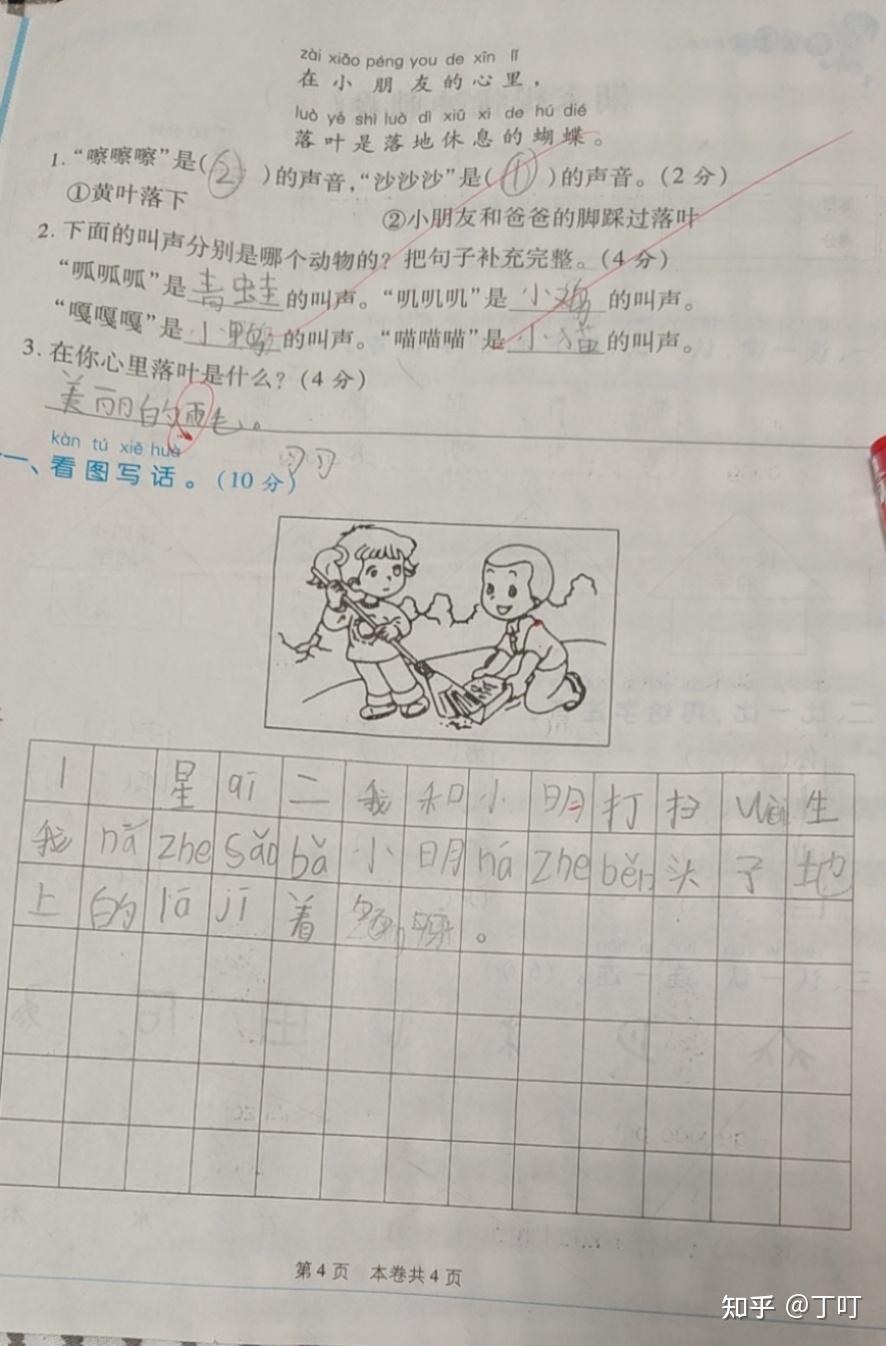 zài xiǎo péng you de xīn lǐ
在小朋友的心里，
luò yè shì luò dì xiū xi de hú dié
落叶是落地休息的蝴蝶。
1.“嚓嚓嚓”是(②)的声音,“沙沙沙”是(①)的声音。(2分)
①黄叶落下 ②小朋友和爸爸的脚踩过落叶
2.下面的叫声分别是哪个动物的？把句子补充完整。(4分)
“呱呱呱”是青蛙的叫声。“叽叽叽”是小鸡的叫声。
“嘎嘎嘎”是小鸭的叫声。“喵喵喵”是小猫的叫声。
3.在你心里落叶是什么？(4分)
美丽的雨毛。
kàn tú xiě huà
一、看图写话。(10分)
星qī二我和小明打扫生
我ná zhe sào bǎ小明ná zhe běn头了地
上的lā jī着
第4页 本卷共4页
知乎 @丁叮